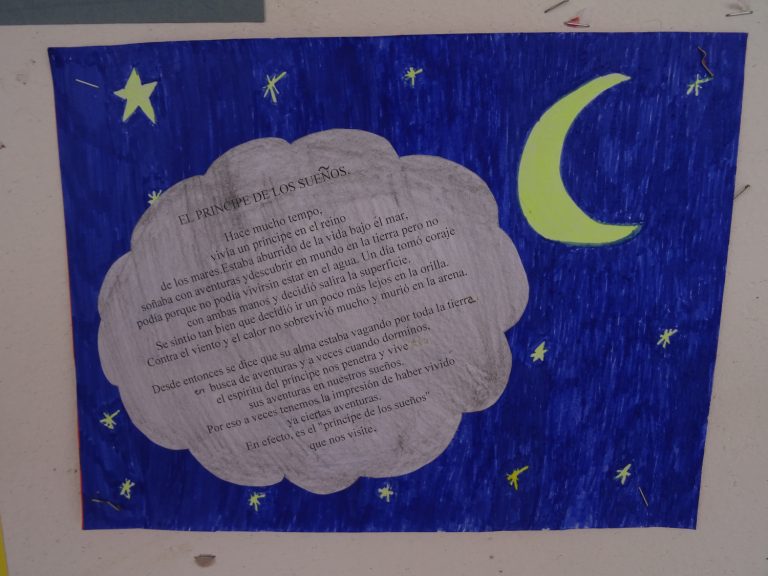 EL PRINCIPE DE LOS SUEÑOS.
Hace mucho tempo,
vivía un príncipe en el reino
de los mares.Estaba aburrido de la vida bajo él mar,
soñaba con aventuras ydescubrir en mundo en la tierra pero no
podía porque no podía vivirsin estar en el agua. Un día tomó coraje
con ambas manos y decidió salira la superficie.
Se sintío tan bien que decidió ir un poco más lejos en la orilla.
Contra el viento y el calor no sobrevivió mucho y murió en la arena.
Desde entonces se dice que su alma estaba vagando por toda la tierra
en busca de aventuras y a veces cuando dormimos,
el espíritu del príncipe nos penetra y vive
sus aventuras en nuestros sueños.
Por eso a veces tenemos la impresión de haber vivido
ya ciertas aventuras.
En efecto, es el "príncipe de los sueños"
que nos visite.